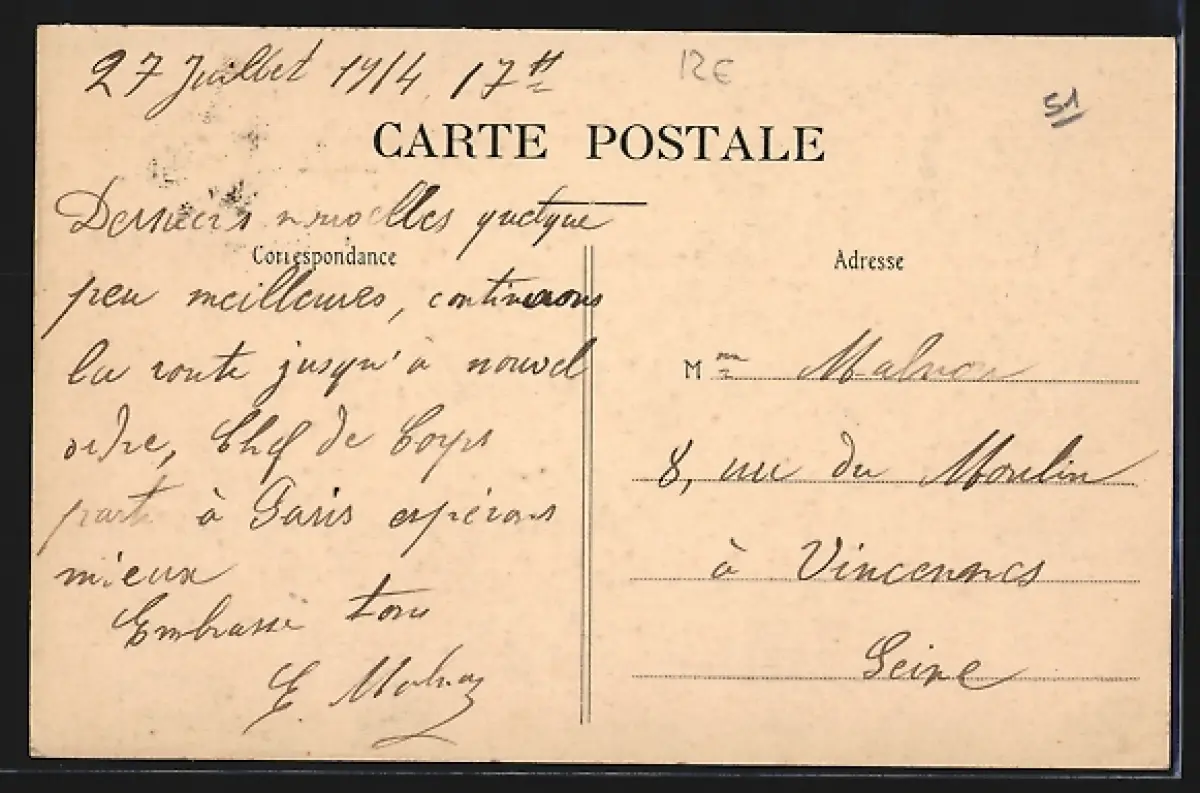 27 Juillet 1914 17H
12€
51
CARTE POSTALE
Dernières nouvelles quelque
Correspondance
peu meilleures, continuons
la route jusqu'à nouvel
ordre, Chef de Corps
parti à Paris espérons
mieux
Embrasse tous
E.
Adresse
Mme
8, rue du Moulin
à Vincennes
Seine